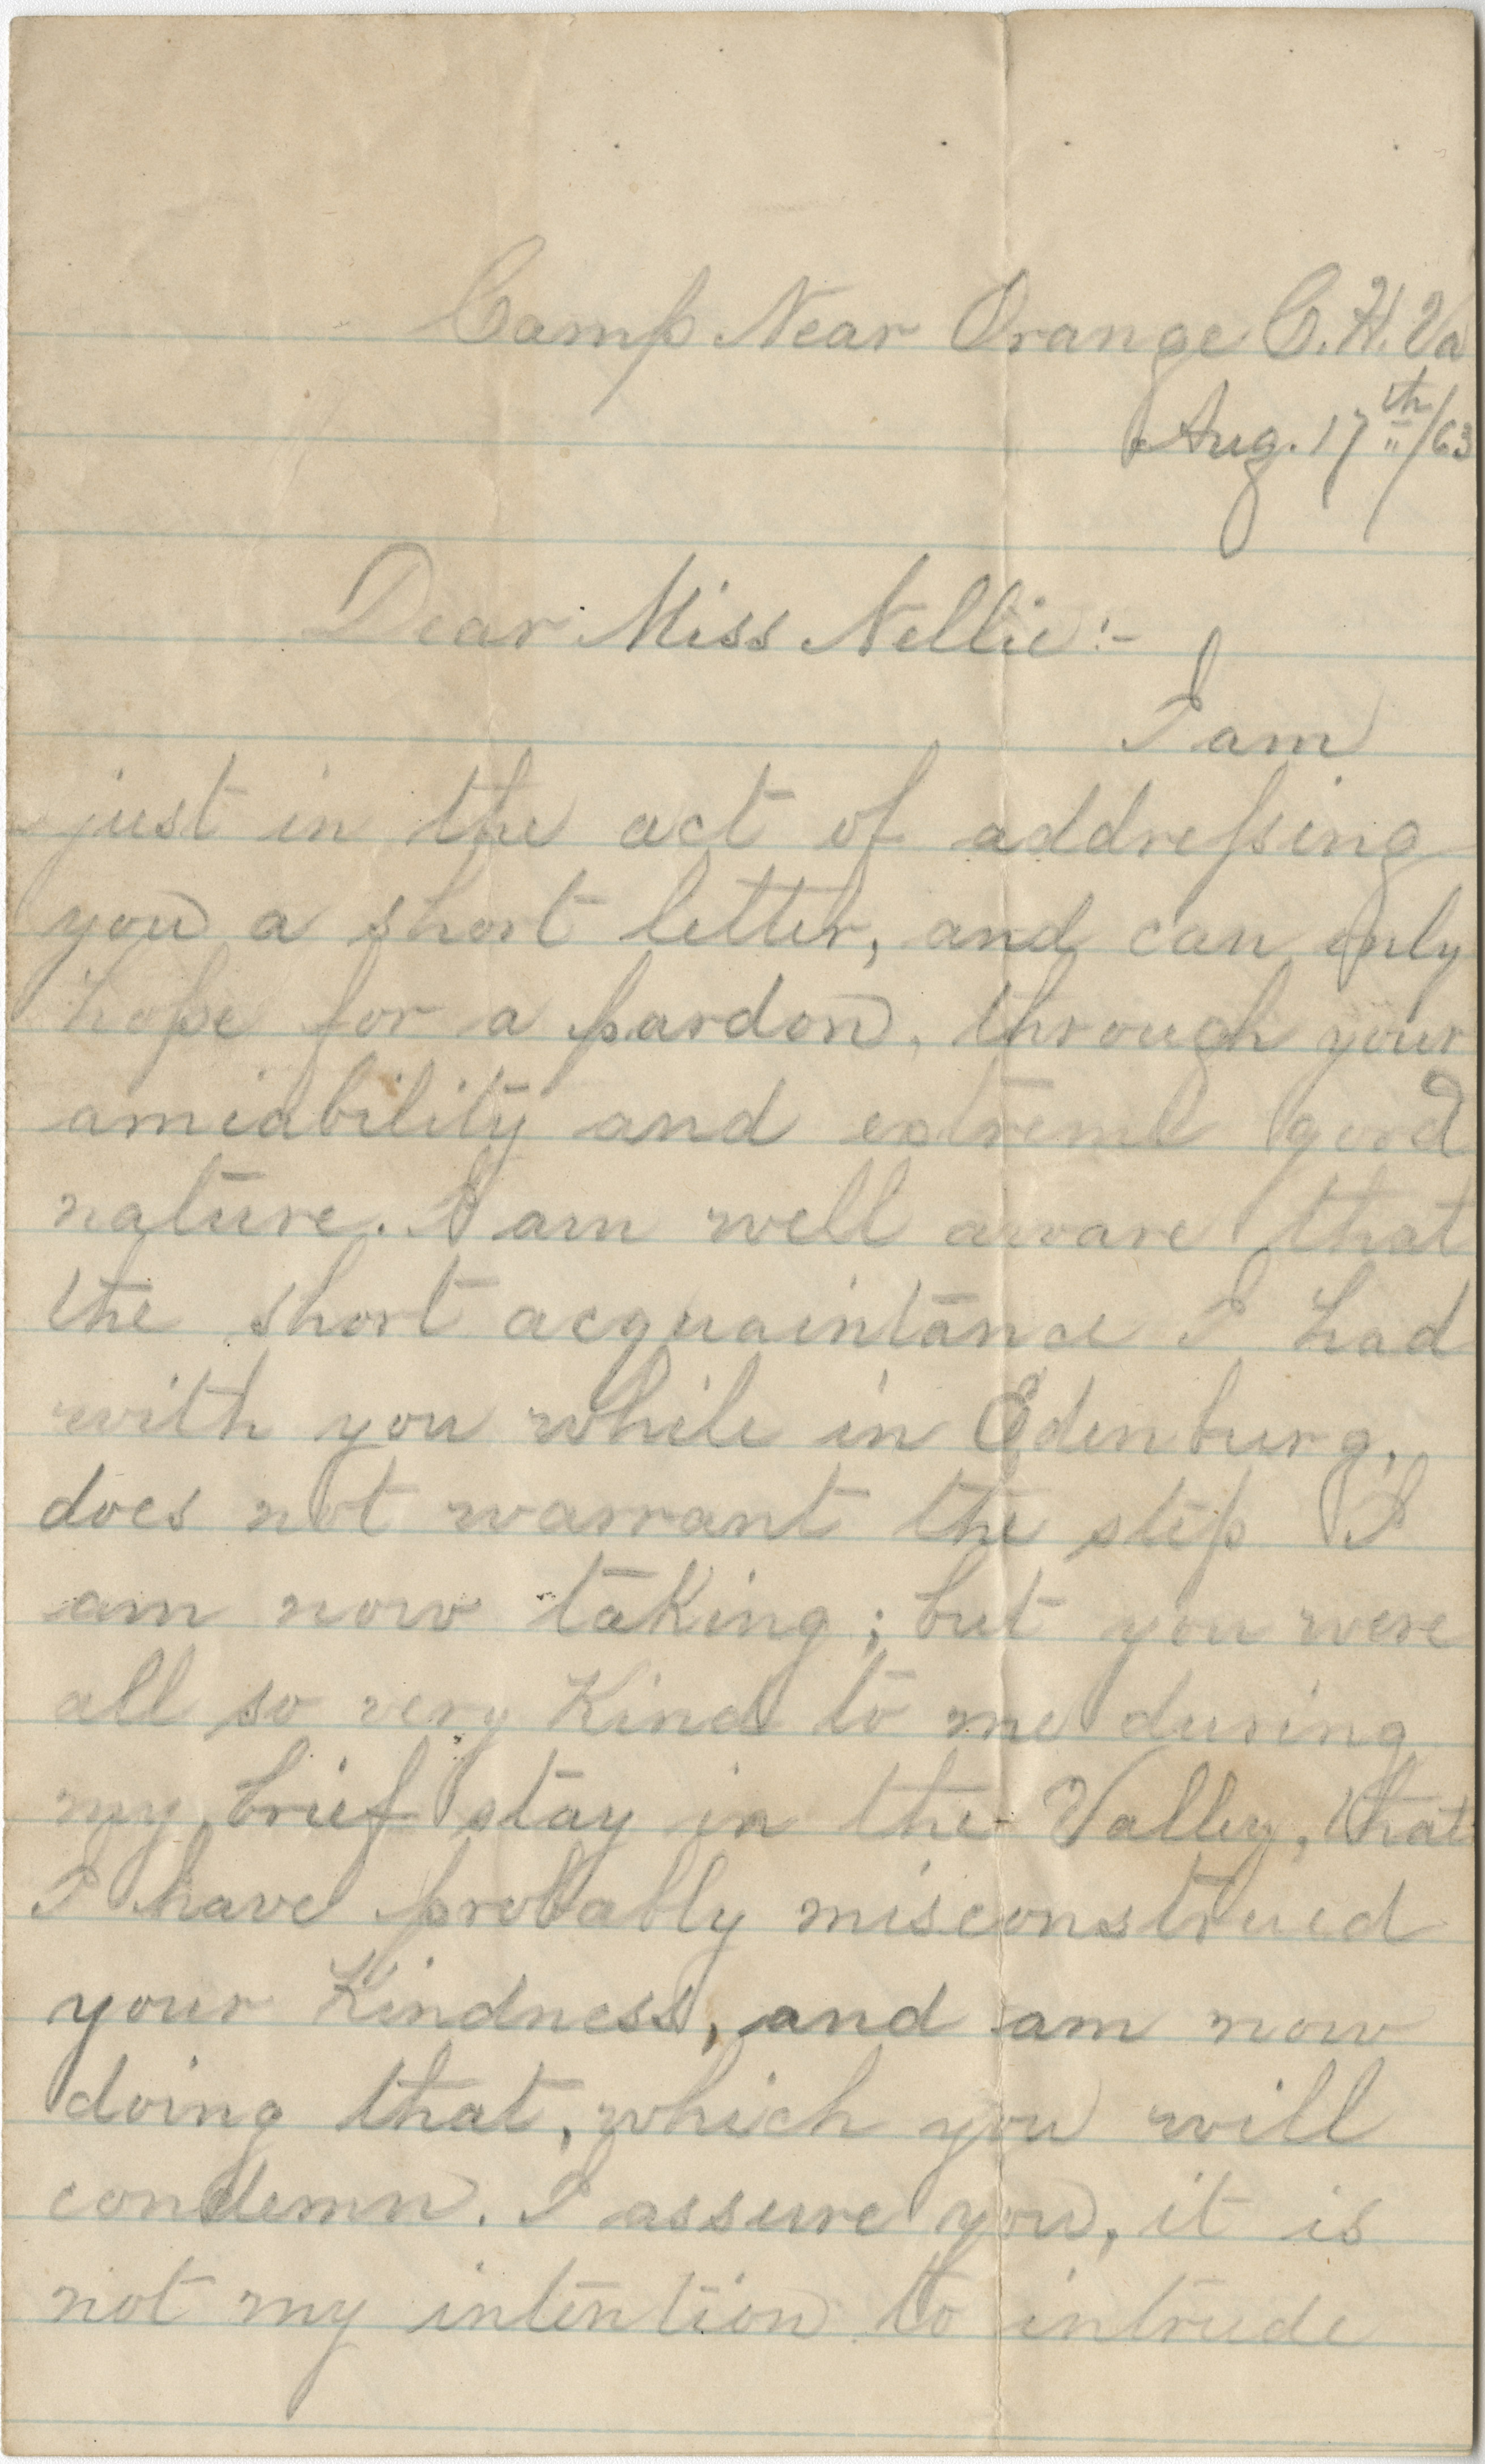 Camp Near Orange C.H. Va
Aug. 17th/63
Dear Miss Nellie:-
I am
just in the act of addreſsing
you a short letter, and can only
hope for a pardon, through your
amiability and extreme good
nature. I am well aware that
the short acquaintance I had
with you while in Edenburg,
does not warrant the step I
am now taking; but you were
all so very Kind to me during
my brief stay in the Valley, that
I have probably misconstrued
your Kindness, and am now
doing that, which you will
condemn. I assure you, it is
not my intention to intrude